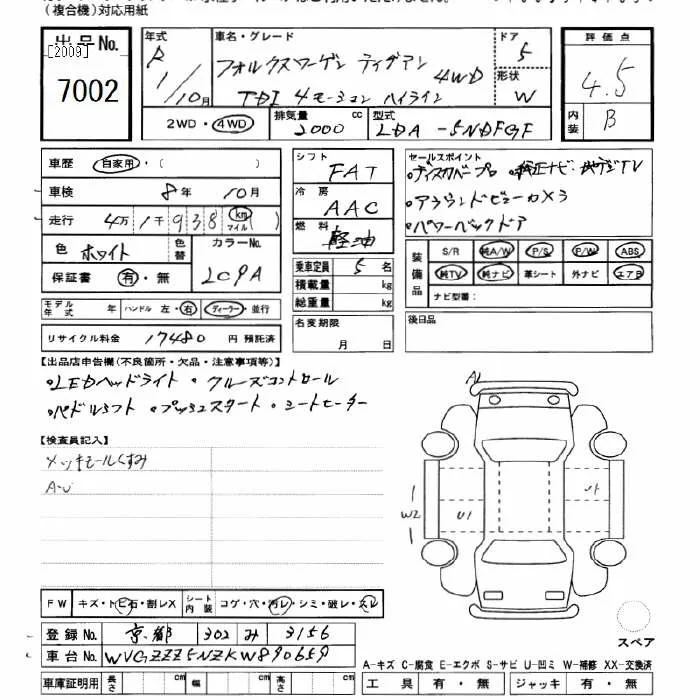 (複合機)対応用紙
出品No.
[2009]
7002
年式
R 1/10月
車名・グレード
フォルクスワーゲン ティグアン 4WD
TDI 4モーション ハイライン
ドア
5
形状
W
評価点
4.5
内装
B
2WD・4WD
排気量
2000 cc
型式
LDA-5NDFGF
車歴 自家用・( )
車検 8年 10月
走行 4万1千938 km マイル ( )
色 ホワイト 色替
カラーNo.
LC9A
保証書 有・無
モデル年式 年 ハンドル 左・右 ディーラー・並行
リサイクル料金 17480 円 預託済
シフト FAT
冷房 AAC
燃料 軽油
乗車定員 5名
積載量 kg
総重量 kg
名変期限
月 日
セールスポイント
・ディスカバープロ ・純正ナビ・地デジTV
・アラウンドビューカメラ
・パワーバックドア
装備品
S/R 純A/W P/S P/W ABS
純TV 純ナビ 革シート 外ナビ エアB
ナビ型番:
後日品
【出品店申告欄(不良箇所・欠品・注意事項等)】
・LEDヘッドライト ・クルーズコントロール
・パドルシフト ・プッシュスタート ・シートヒーター
【検査員記入】
メッキモールくすみ
A・U
A1
W2
U1
FW キズ・トビ石・割レX
シート内装 コゲ・穴・汚レ・シミ・破レ・スレ
登録No. 京都 302 み 3156
車台No. WVGZZZ5NZKW890659
車庫証明用 長さ cm 幅 cm 高さ cm
スペア
A-キズ C-腐食 E-エクボ S-サビ U-凹ミ W-補修 XX-交換済
工具 有・無 ジャッキ 有・無